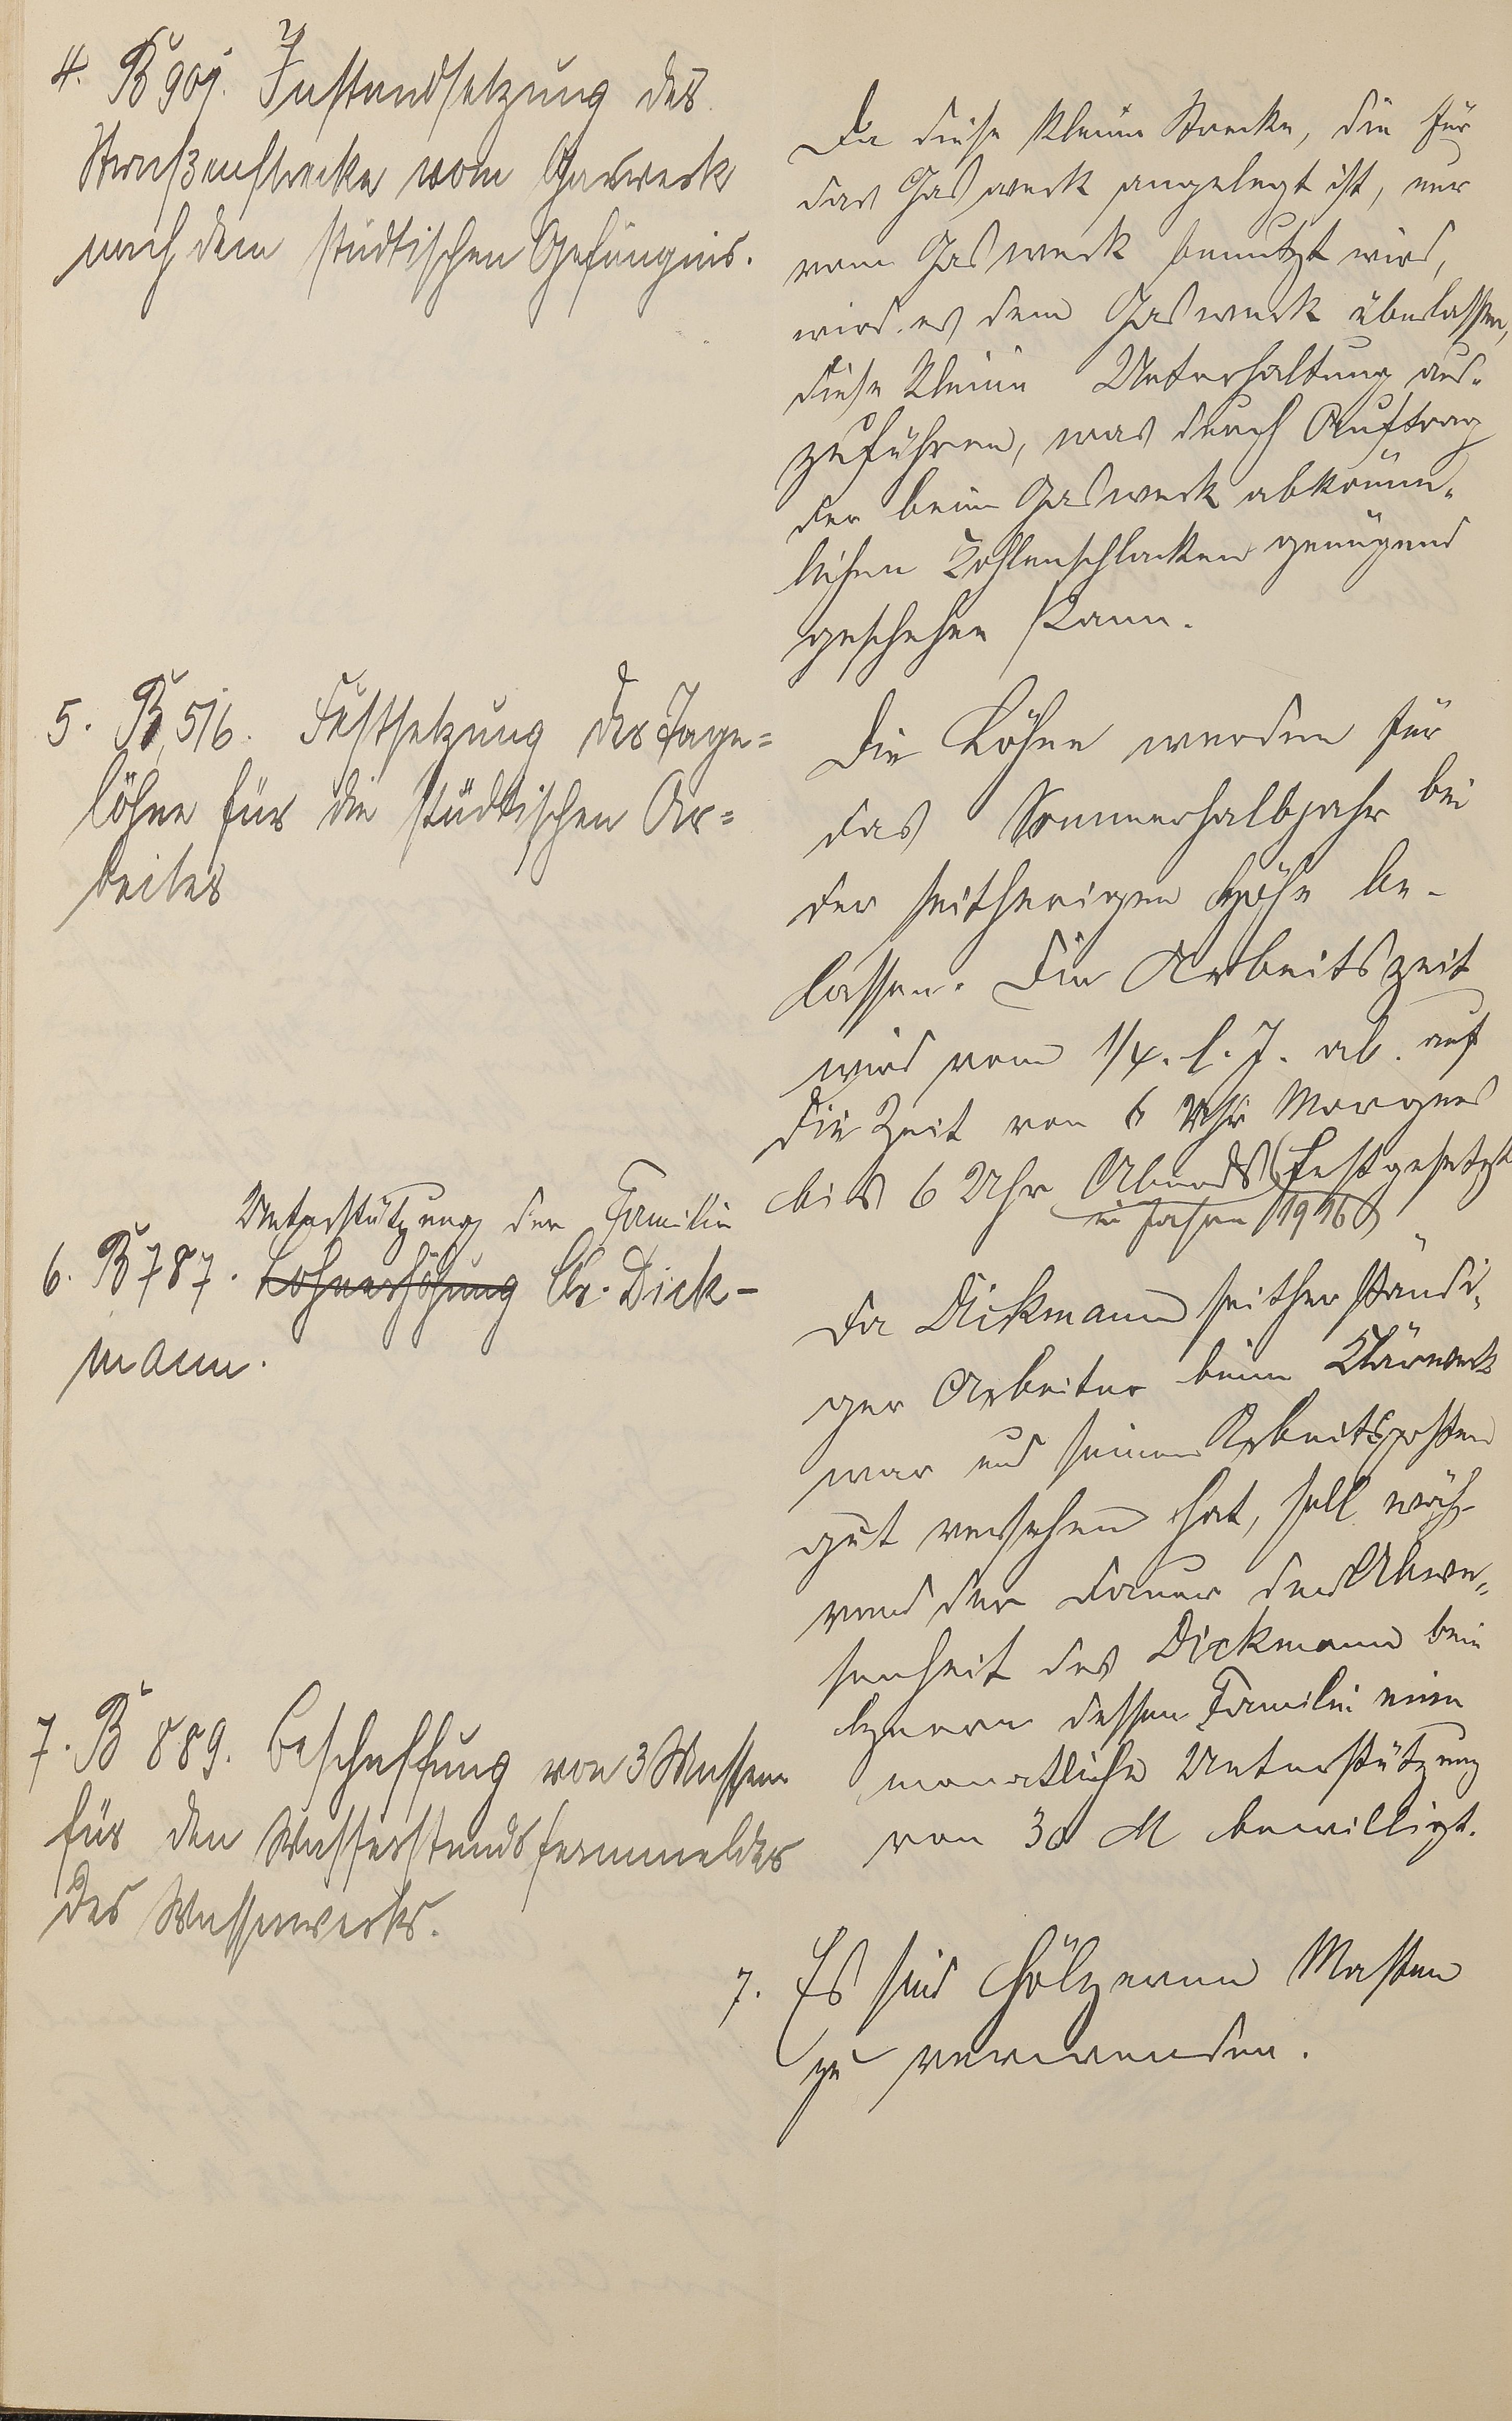 4. B 901. Instandsetzung des
Straßenstrecke vom Gaswerk
nach dem städtischen Gefängnis.
Da diese kleine Strecke, die für
das Gaswerk angelegt ist, nur
vom Gaswerk benutzt wird,
wird es dem Gaswerk überlassen,
diese kleine Unterhaltung aus-
zuführen, was durch Auftrag
der beim Gaswerk abkömm-
lichen Kohlenschlacken genügend
geschehen kann.
5. B 516. Festsetzung der Tage=
löhne für die städtischen Ar=
beiter
Die Löhne werden für
das Sommerhalbjahr bei
der seitherigen Höhe be-
lassen. Die Arbeitszeit
wird vom 1/4. l. J. ab auf
die Zeit von 6 Uhr Morgens
bis 6 Uhr Abends festgesetzt
im Jahre 1916
Unterstützung der Familie
6. B 787. Lohnerhöhung Chr. Dick-
mann.
Da Dickmann seither ständi-
ger Arbeiter beim Klärwerk
war und seinen Arbeitsposten
gut versehen hat, soll wäh-
rend der Dauer der Abwe-
senheit des Dickmann beim
dessen Familie eine
monatliche Unterstützung
von 30 M bewilligt.
7. B 889. Beschaffung von 3 Massten
für den Wasserstandsfernmelder
des Wasserwerks.
7. Es sind hölzerne Masten
zu verwenden.